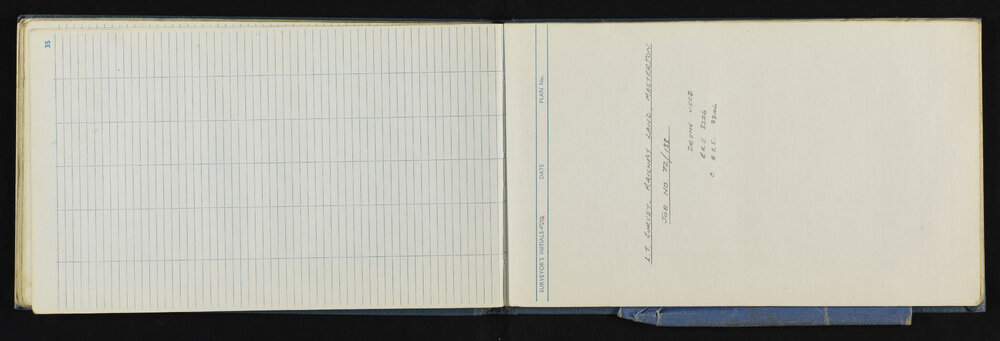 35
SURVEYOR'S INITIALS
DATE
PLAN No.
L.T. SURVEY, RAILWAY LAND, MASTERTON
JOB NO 72/188
DRUMS USED